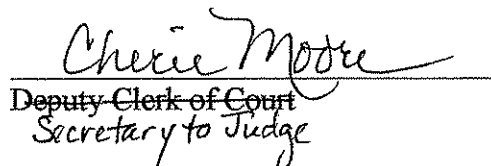 Cherie Moore
Deputy Clerk of Court
Secretary to Judge